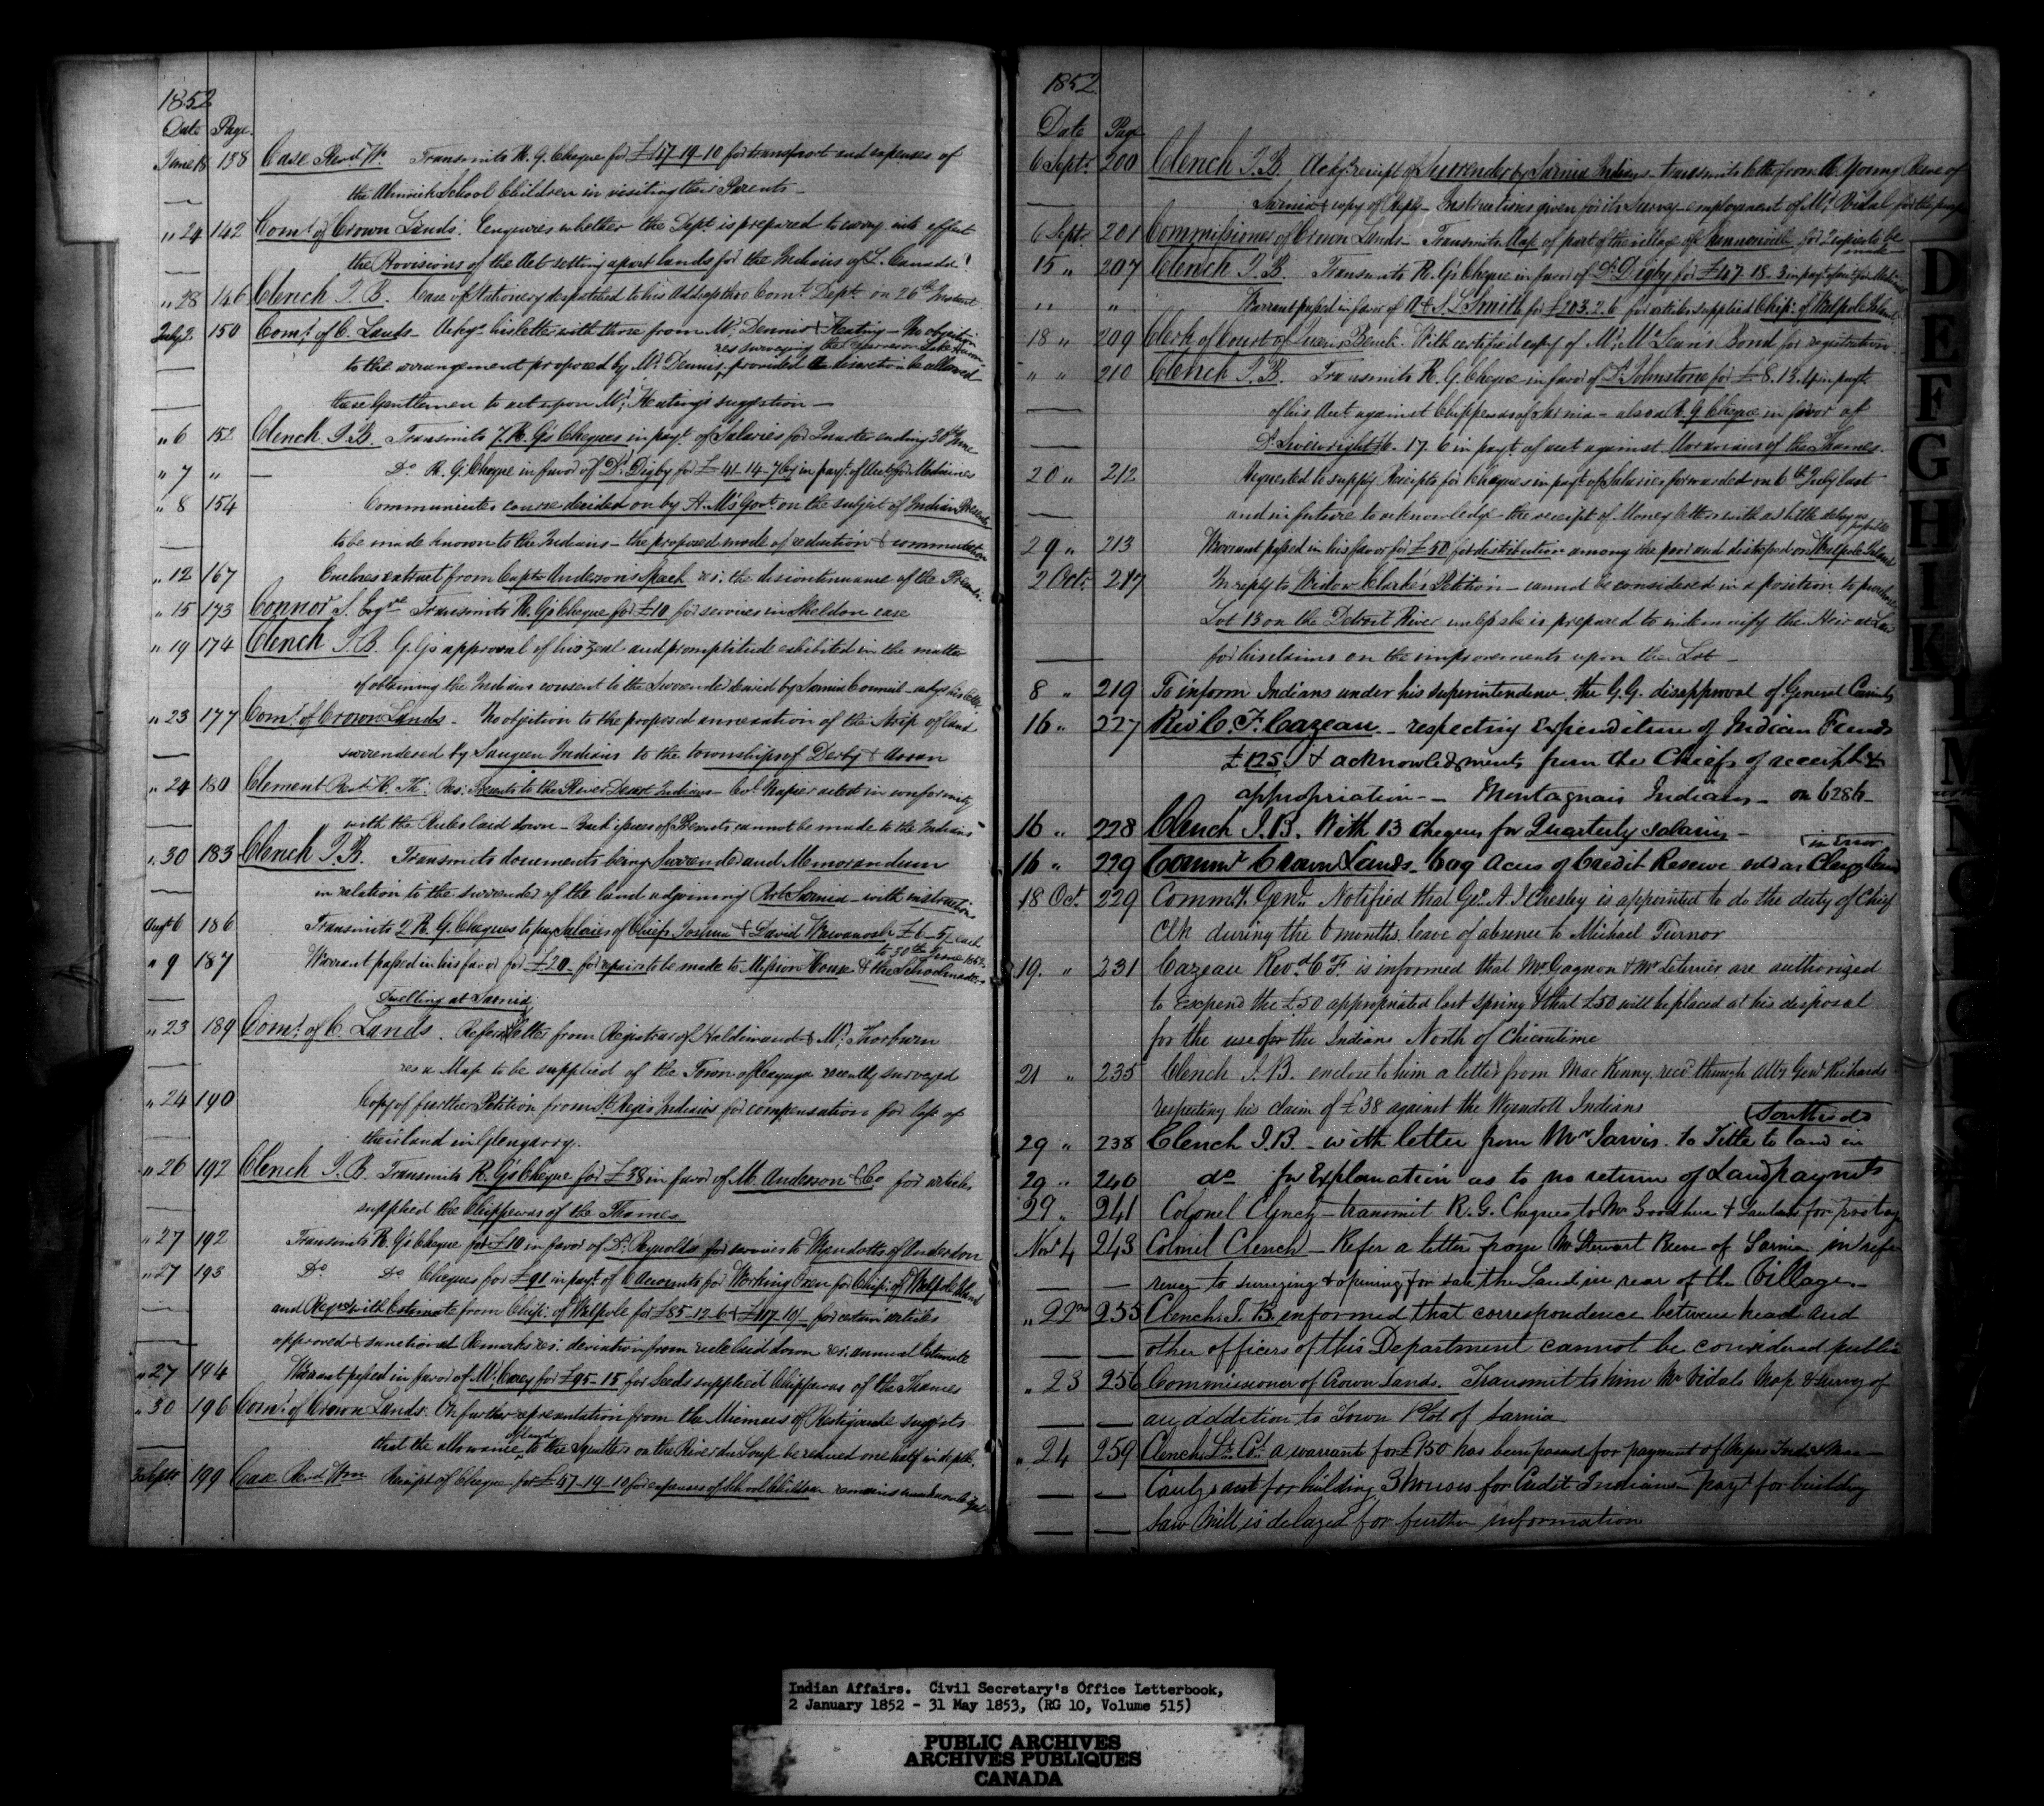 1852
Date Page
June 18 138 Case Revd Wm Transmits R. G. Cheque for £47-19-10 for transport and expenses of
the Alnwick School Children in visiting their Parents -
" 24 142 Comr of Crown Lands. Enquires whether the Dept is prepared to carry into effect
the Provisions of the Act setting apart lands for the Indians of L. Canada
" 28 146 Clench J. B. Case of Stationery despatched to his Address thro Comt Dept on 26th Instant
July 2 150 Comr of C. Lands - Ackgs his letter with those from Mr Dennis & Keating - No objection
res surveying the Narrows on Lake Huron
to the arrangement proposed by Mr Dennis, provided a discretion be allowed
these Gentlemen to act upon Mr Keating's suggestion -
" 6 152 Clench J. B. Transmits 7 R. G's Cheques in payt of Salaries for Quarter ending 30th June
" 7 " - Do R. G. Cheque in favor of Dr Digby for £41-14-7 in payt of Acct for Medicines
" 8 154 Communicates course decided on by H. M's Govt on the subject of Indian Presents
to be made known to the Indians - the proposed mode of reduction & commutation
" 12 167 Encloses extract from Captn Anderson's Speech res: the discontinuance of the Presents.
" 15 173 Connor S. Esqre Transmits R. G's Cheque for £10 for services in Sheldon case
" 19 174 Clench J. B. G. G's approval of his zeal and promptitude exhibited in the matter
of obtaining the Indians consent to the Surrender desired by Sarnia Council - ackgs his letter
" 23 177 Comr of Crown Lands - No objection to the proposed annexation of the Strip of land
surrendered by Saugeen Indians to the townships of Derby & Arran
" 24 180 Clement Revd Res: Presents to the River Desert Indians - Col. Napier acted in conformity
with the Rules laid down - Back issues of Presents cannot be made to the Indians
" 30 183 Clench J. B. Transmits documents being Surrender and Memorandum
in relation to the surrender of the land adjoining Port Sarnia - with instructions
Augt 6 186 Transmits 2 R. G. Cheques to pay Salaries of Chiefs Joshua & David Wawanosh £6-5/- each
to 30th June 1852
" 9 187 Warrant passed in his favor for £20 - for repairs to be made to Mission House & the Schoolmaster's
Dwelling at Sarnia
" 23 189 Comr of C. Lands. Refers Letter from Registrar of Haldimand & Mr Thorburn
res a Map to be supplied of the Town of Cayuga recently surveyed
" 24 190 Copy of further Petition from St Regis Indians for compensation for loss of
their land in Glengarry.
" 26 192 Clench J. B. Transmits R. G's Cheque for £38 in favor of M. Anderson & Co for articles
supplied the Chippewas of the Thames
" 27 192 Transmits R. G's Cheque for £10 in favor of Dr Reynolds for services to Wyandotts of Anderdon
" 27 193 Do Do Cheques for £91 in payt of 6 Accounts for Working Oxen for Chips of Walpole Island
and Requsn with Estimate from Chips of Walpole for £85-12-6 & £117-19/- for certain articles
approved & sanctioned Remarks res: deviation from rule laid down res: annual Estimate
" 27 194 Warrant passed in favor of Mr Carey for £95-15 for Seeds supplied Chippewas of the Thames
" 30 196 Comr of Crown Lands. On further representation from the Micmacs of Restigouche suggests
of land
that the allowance to the Squatters on the River du Loup be reduced one half in depth.
Septr 199 Case Revd Wm Receipt of Cheque for £47-19-10 for expenses of School Children remains unacknowledged
1852
Date Page
6 Septr 200 Clench J. B. Ackgs receipt of Surrender by Sarnia Indians - transmits letter from A. Young Reeve of
Sarnia & copy of Reply - Instructions given for its Survey - employment of Mr Vidal for the purpose
6 Septr 201 Commissioner of Crown Lands - Transmits Map of part of the village of Bronteville for Copies to be
made
15 " 207 Clench J. B. Transmits R. G's Cheque in favor of Dr Digby for £47-18-3 in payt of acct for Medicines
" " " Warrant passed in favor of A & S. L Smith for £103.2.6 for articles supplied Chips of Walpole Island
18 " 209 Clerk of Court of Queens Bench. With certified copy of Mr McLean's Bond for registration.
" " 210 Clench J. B. Transmits R. G. Cheque in favor of Dr Johnstone for £8.13.4 in payt
of his Acct against Chippewas of Sarnia - also a R. G. Cheque in favor of
Dr Sivewright 17.6 in payt of acct against Moravians of the Thames.
20 " 212 Requested to supply Receipts for Cheques in payt of Salaries forwarded on 6th July last
and in future to acknowledge the receipt of Money letters with as little delay as
possible
29 " 213 Warrant passed in his favor for £50 for distribution among the poor and distressed on Walpole Island
2 Octr 217 In reply to Widow Clarke's Petition - cannot be considered in a position to purchase
Lot 13 on the Detroit River unless she is prepared to indemnify the Heir at Law
for his claims on the improvements upon the Lot -
8 " 219 To inform Indians under his superintendence the G.G. disapproval of General Councils
16 " 227 Revd C. F. Cazeau - respecting Expenditure of Indian Funds
£125 & acknowledgments from the Chiefs of receipt &
appropriation - Montagnais Indians - on 6286 -
16 " 228 Clench J. B. With 13 cheques for Quarterly salaries -
in Error
16 " 229 Commr Crown Lands - 609 Acres of Credit Reserve sold as Clergy Lands
18 Oct. 229 Commy Genl Notified that Geo. A. I Chesley is appointed to do the duty of Chief
Clk during the 6 months leave of absence to Michael Turnor
19. " 231 Cazeau Revd C F. is informed that Mr Gagnon & Mr Leterrier are authorized
to expend the £50 appropriated last spring & that £50 will be placed at his disposal
for the use of the Indians North of Chicoutime
21 " 235 Clench J. B. enclose to him a letter from MacKenny recd through Atty Genl Richards
respecting his claim of £38 against the Wyandott Indians
Southwold
29 " 238 Clench J. B. - with letter from Mr Jarvis. to Title to land in
29 " 240 do for Explanation as to no return of Land paymts
29 " 241 Colonel Clench - transmit R. G. Cheques to Mr Goodhue & for postage
Novr 4 243 Colonel Clench - Refer a letter from Mr Stewart Reeve of Sarnia in refe
rence to surveying & opening for sale the Land in rear of the Village -
" 22nd 255 Clench J. B. informed that correspondence between head and
other officers of this Department cannot be considered public
" 23 256 Commissioner of Crown Lands. Transmit to him Mr Vidals Map & survey of
an addition to Town Plot of Sarnia
" 24 259 Clench Lt Col. a warrant for £150 has been passed for payment of Messrs
acct for building 3 houses for Credit Indians - payt for building
Saw Mill is delayed for further information
D
E
F
G
H
I
K
L
M
N
Indian Affairs. Civil Secretary's Office Letterbook,
2 January 1852 - 31 May 1853, (RG 10, Volume 515)
PUBLIC ARCHIVES
ARCHIVES PUBLIQUES
CANADA